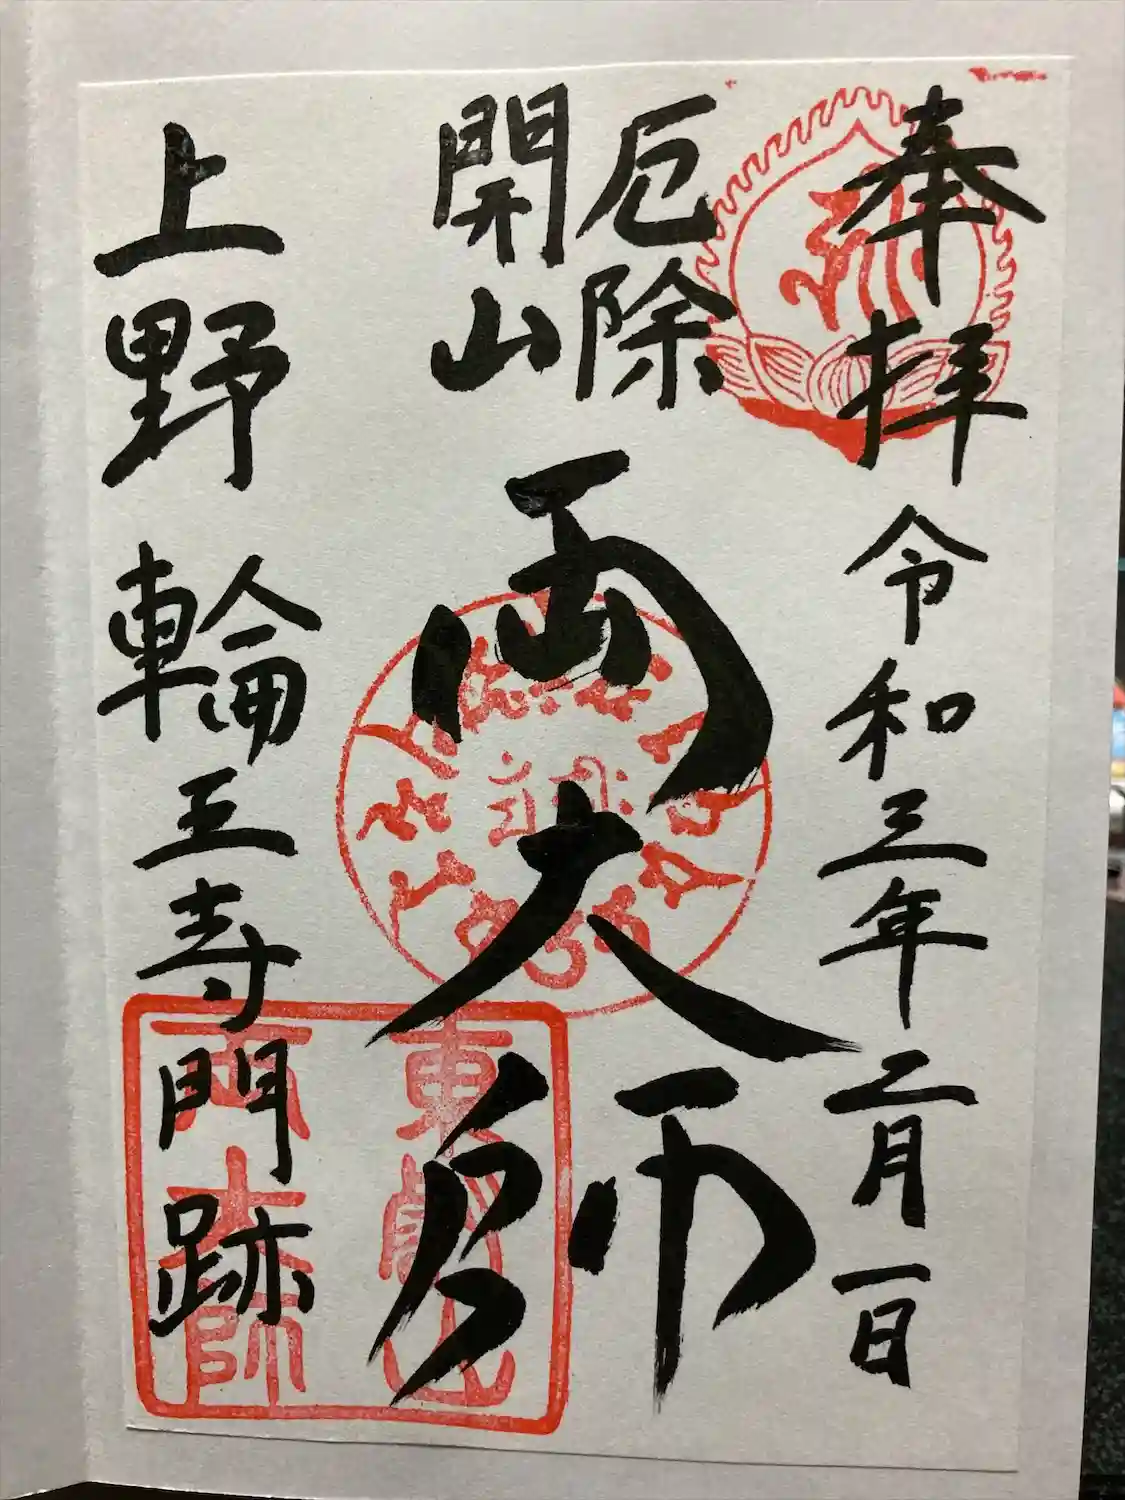 奉拝 令和三年二月一日
厄除
開山
両大師
上野 輪王寺門跡
東叡山
両大師